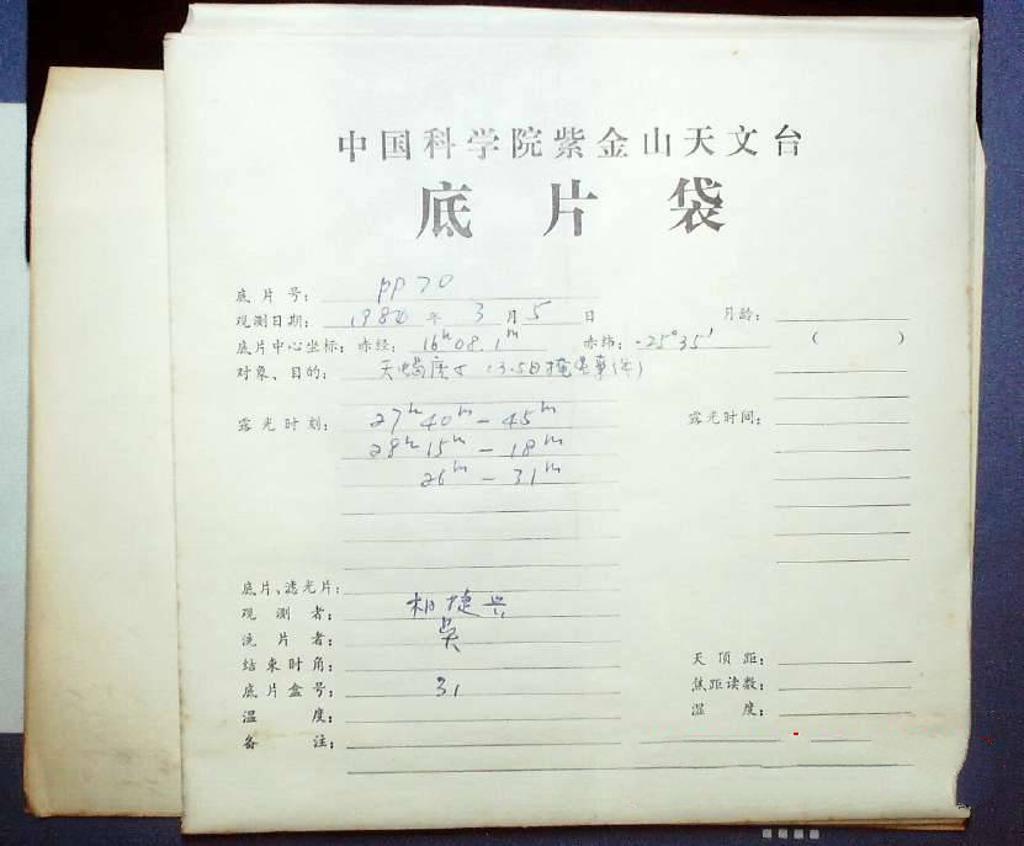 中国科学院紫金山天文台
底片袋
底片号: PP70
观测日期: 1980年3月5日 月龄:
底片中心坐标: 赤经: 16h08.1m 赤纬: -25°35′ ( )
对象、目的: 天蝎 3.5日掩星事
露光时刻: 27h40m-45m 露光时间:
28h15m-18m
26m-31m
底片、滤光片:
观测者: 相捷兴
洗片者: 吴
结束时角: 天顶距:
底片盒号: 31 焦距读数:
温度: 湿度:
备注: